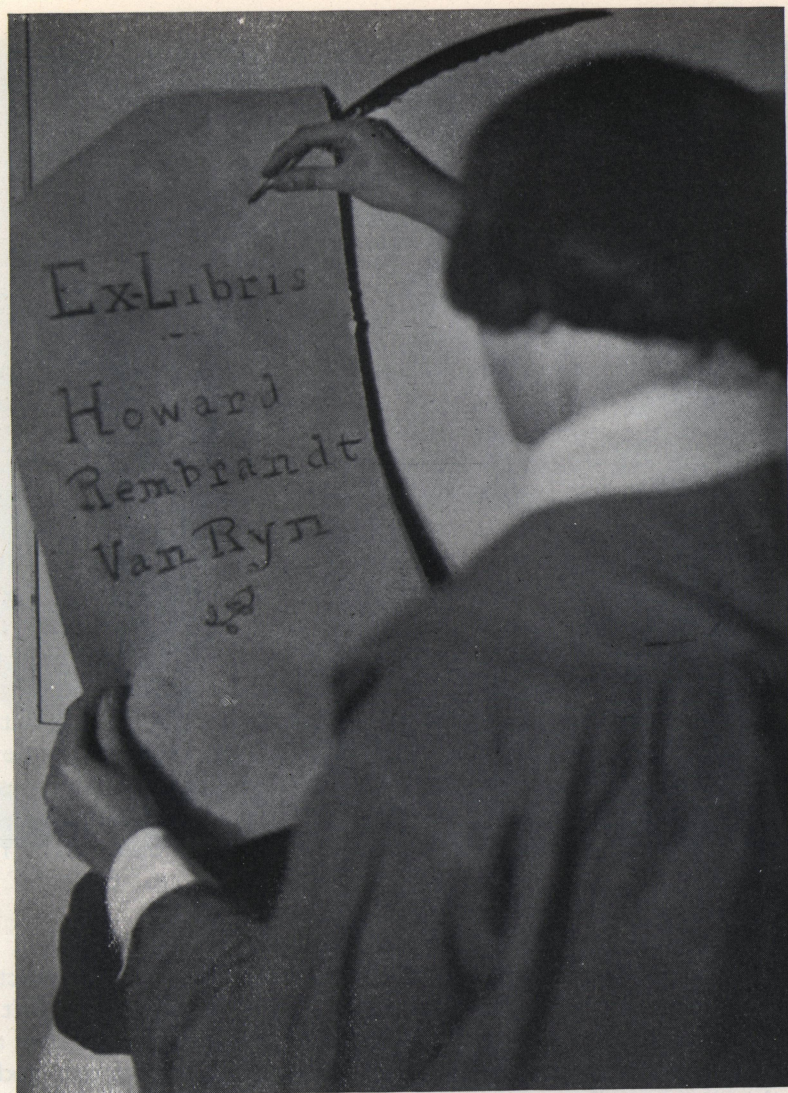 Ex-Libris
Howard
Rembrandt
Van Ryn